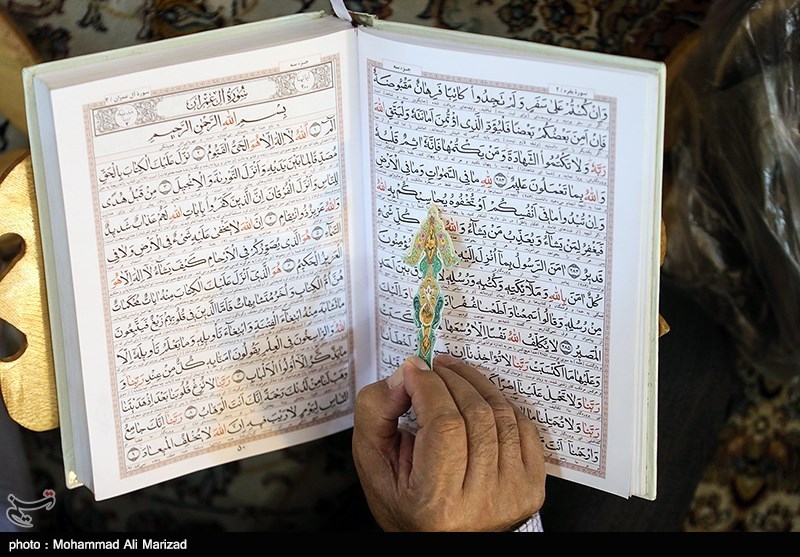 سورة بقره ۲
جزء سه
وَإِنْ كُنْتُمْ عَلَى سَفَرٍ وَلَمْ تَجِدُوا كَاتِبًا فَرِهَانٌ مَقْبُوضَةٌ
فَإِنْ أَمِنَ بَعْضُكُمْ بَعْضًا فَلْيُؤَدِّ الَّذِي اؤْتُمِنَ أَمَانَتَهُ وَلْيَتَّقِ اللَّهَ
رَبَّهُ وَلَا تَكْتُمُوا الشَّهَادَةَ وَمَنْ يَكْتُمْهَا فَإِنَّهُ آثِمٌ قَلْبُهُ
وَاللَّهُ بِمَا تَعْمَلُونَ عَلِيمٌ ﴿۲۸۳﴾ لِلَّهِ مَا فِي السَّمَوَاتِ وَمَا فِي الْأَرْضِ
وَإِنْ تُبْدُوا مَا فِي أَنْفُسِكُمْ أَوْ تُخْفُوهُ يُحَاسِبْكُمْ بِهِ
فَيَغْفِرُ لِمَنْ يَشَاءُ وَيُعَذِّبُ مَنْ يَشَاءُ وَاللَّهُ كُلِّ شَيْءٍ
قَدِيرٌ ﴿۲۸۴﴾ آمَنَ الرَّسُولُ بِمَا أُنْزِلَ إِلَيْهِ
كُلٌّ آمَنَ بِاللَّهِ وَمَلَائِكَتِهِ وَكُتُبِهِ وَرُسُلِهِ بَيْنَ أَحَدٍ
مِنْ رُسُلِهِ وَقَالُوا سَمِعْنَا وَأَطَعْنَا وَإِلَيْكَ
الْمَصِيرُ ﴿۲۸۵﴾ لَا يُكَلِّفُ اللَّهُ نَفْسًا إِلَّا وُسْعَهَا
وَعَلَيْهَا مَا اكْتَسَبَتْ رَبَّنَا لَا تُؤَاخِذْنَا إِنْ
رَبَّنَا وَلَا تَحْمِلْ عَلَيْنَا إِصْرًا
رَبَّنَا وَلَا تُحَمِّلْنَا مَا
وَارْحَمْنَا أَنْتَ
جزء سه
سورة آل عمران ۳
سُورَةُ آلِ عِمْرَانَ
بِسْمِ اللَّهِ الرَّحْمَنِ الرَّحِيمِ
الم ﴿۱﴾ اللَّهُ لَا إِلَهَ إِلَّا هُوَ الْحَيُّ الْقَيُّومُ ﴿۲﴾ نَزَّلَ عَلَيْكَ الْكِتَابَ بِالْحَقِّ
مُصَدِّقًا لِمَا بَيْنَ يَدَيْهِ وَأَنْزَلَ التَّوْرَاةَ وَالْإِنْجِيلَ ﴿۳﴾ مِنْ قَبْلُ هُدًى
لِلنَّاسِ وَأَنْزَلَ الْفُرْقَانَ إِنَّ الَّذِينَ كَفَرُوا بِآيَاتِ اللَّهِ لَهُمْ عَذَابٌ شَدِيدٌ
وَاللَّهُ عَزِيزٌ ذُو انْتِقَامٍ ﴿۴﴾ إِنَّ اللَّهَ لَا يَخْفَى عَلَيْهِ شَيْءٌ فِي الْأَرْضِ وَلَا فِي
السَّمَاءِ ﴿۵﴾ هُوَ الَّذِي يُصَوِّرُكُمْ فِي الْأَرْحَامِ كَيْفَ يَشَاءُ لَا إِلَهَ إِلَّا هُوَ
الْعَزِيزُ الْحَكِيمُ ﴿۶﴾ هُوَ الَّذِي أَنْزَلَ عَلَيْكَ الْكِتَابَ مِنْهُ آيَاتٌ مُحْكَمَاتٌ
هُنَّ أُمُّ الْكِتَابِ وَأُخَرُ مُتَشَابِهَاتٌ فَأَمَّا الَّذِينَ فِي قُلُوبِهِمْ زَيْغٌ فَيَتَّبِعُونَ
مَا تَشَابَهَ مِنْهُ ابْتِغَاءَ الْفِتْنَةِ وَابْتِغَاءَ تَأْوِيلِهِ وَمَا يَعْلَمُ تَأْوِيلَهُ إِلَّا
اللَّهُ وَالرَّاسِخُونَ فِي الْعِلْمِ يَقُولُونَ آمَنَّا بِهِ كُلٌّ مِنْ عِنْدِ رَبِّنَا وَمَا
يَذَّكَّرُ إِلَّا أُولُو الْأَلْبَابِ ﴿۷﴾ رَبَّنَا لَا تُزِغْ قُلُوبَنَا بَعْدَ إِذْ هَدَيْتَنَا
وَهَبْ لَنَا مِنْ لَدُنْكَ رَحْمَةً إِنَّكَ أَنْتَ الْوَهَّابُ ﴿۸﴾ رَبَّنَا إِنَّكَ جَامِعُ
النَّاسِ لِيَوْمٍ لَا رَيْبَ فِيهِ إِنَّ اللَّهَ لَا يُخْلِفُ الْمِيعَادَ ﴿۹﴾
۵۰
تسنیم
photo : Mohammad Ali Marizad